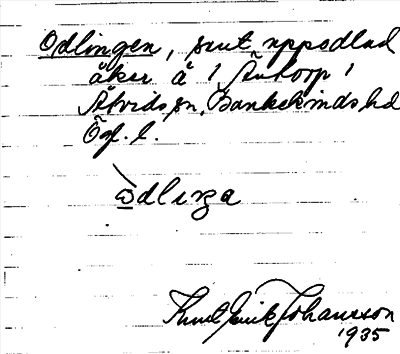 Odlingen, sent uppodlad
åker å 1 Åntorp 1
Åtvids sn, Bankekinds hd
Ög. l.
odlıŋa
Knut Erik Johansson
1935